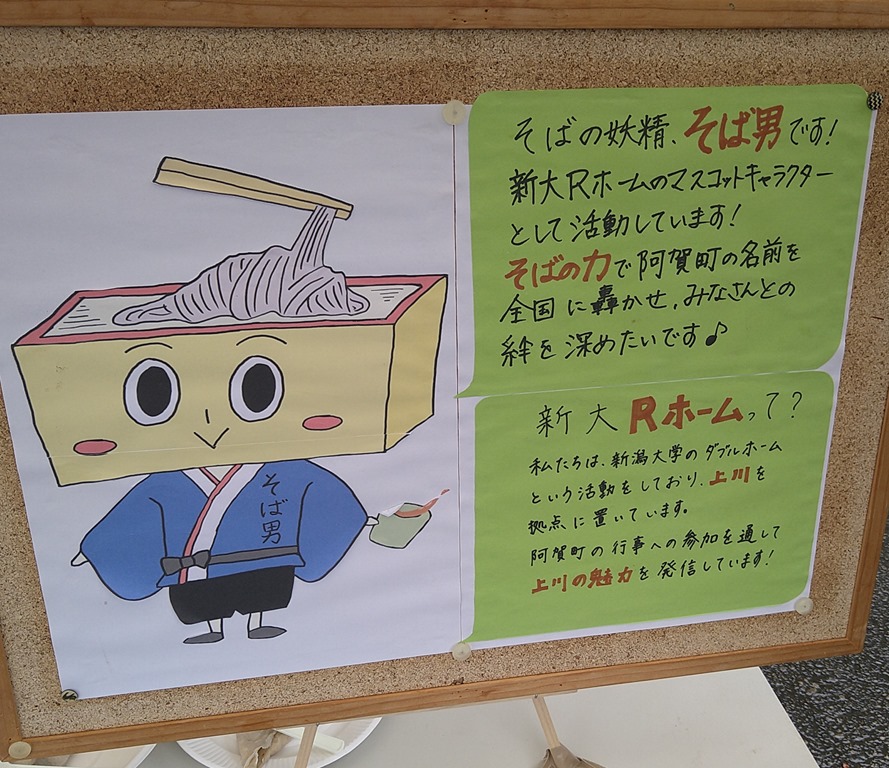 そば男
そばの妖精、そば男です!
新大Rホームのマスコットキャラクター
として活動しています!
そばの力で阿賀町の名前を
全国に轟かせ、みなさんとの
絆を深めたいです♪
新大Rホームって?
私たちは、新潟大学のダブルホーム
という活動をしており、上川を
拠点に置いています。
阿賀町の行事への参加を通して
上川の魅力を発信しています!